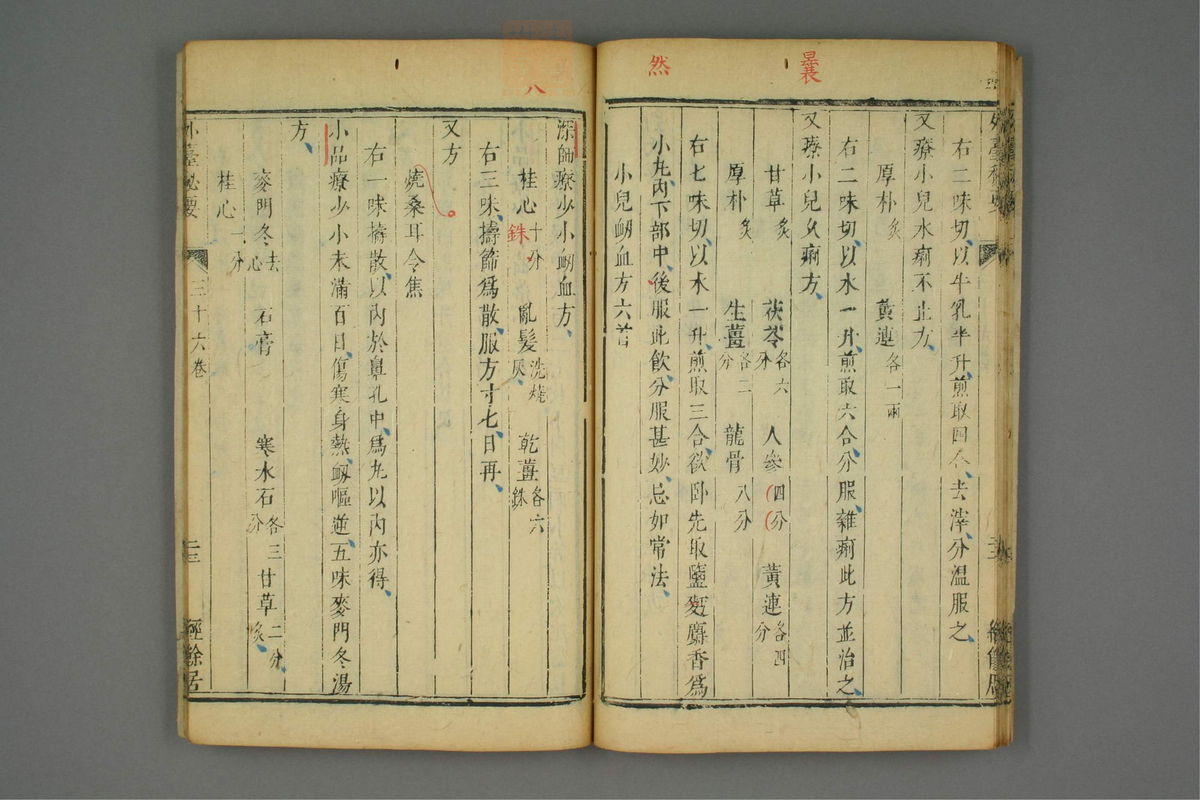 然
曩
右二味切以牛乳半升煎取四合去滓分溫服之
又療小兒水痢不止方
厚朴炙 黃連各一兩
右二味切以水一升煎取六合分服雜痢此方並治之
又療小兒久痢方
甘草炙 茯苓各六分 人參四分 黃連各四分
厚朴炙 生薑各二分 龍骨八分
右七味切以水一升煎取三合欲卧先取鹽麫麝香爲
小丸內下部中後服此飲分服甚妙忌如常法
小兒衂血方六首
八
深師療少小衂血方
桂心十分 銖 亂髮洗燒灰 乾薑各六銖
右三味擣篩爲散服方寸七日再
又方
燒桑耳令焦
右一味擣散以內於鼻孔中爲丸以內亦得
小品療少小未滿百日傷寒身熱衂嘔逆五味麥門冬湯
方
麥門冬去心 石膏 寒水石各三分 甘草二分炙
桂心一分
外臺祕要 三十六卷 二三 經餘居